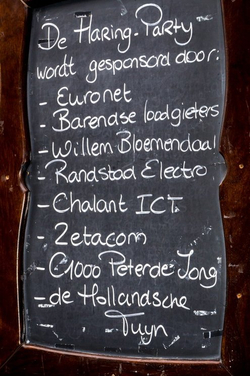 De Haring-Party
wordt gesponsord door:
- Euronet
- Barendse loodgieters
- Willem Bloemendaal
- Randstad Electro
- Chalant ICT.
- Zetacom
- C1000 Peter de Jong
- de Hollandsche
Tuyn